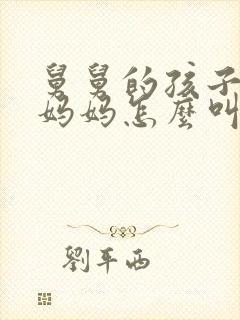 舅舅的孩子
妈妈怎麼叫
劉平西